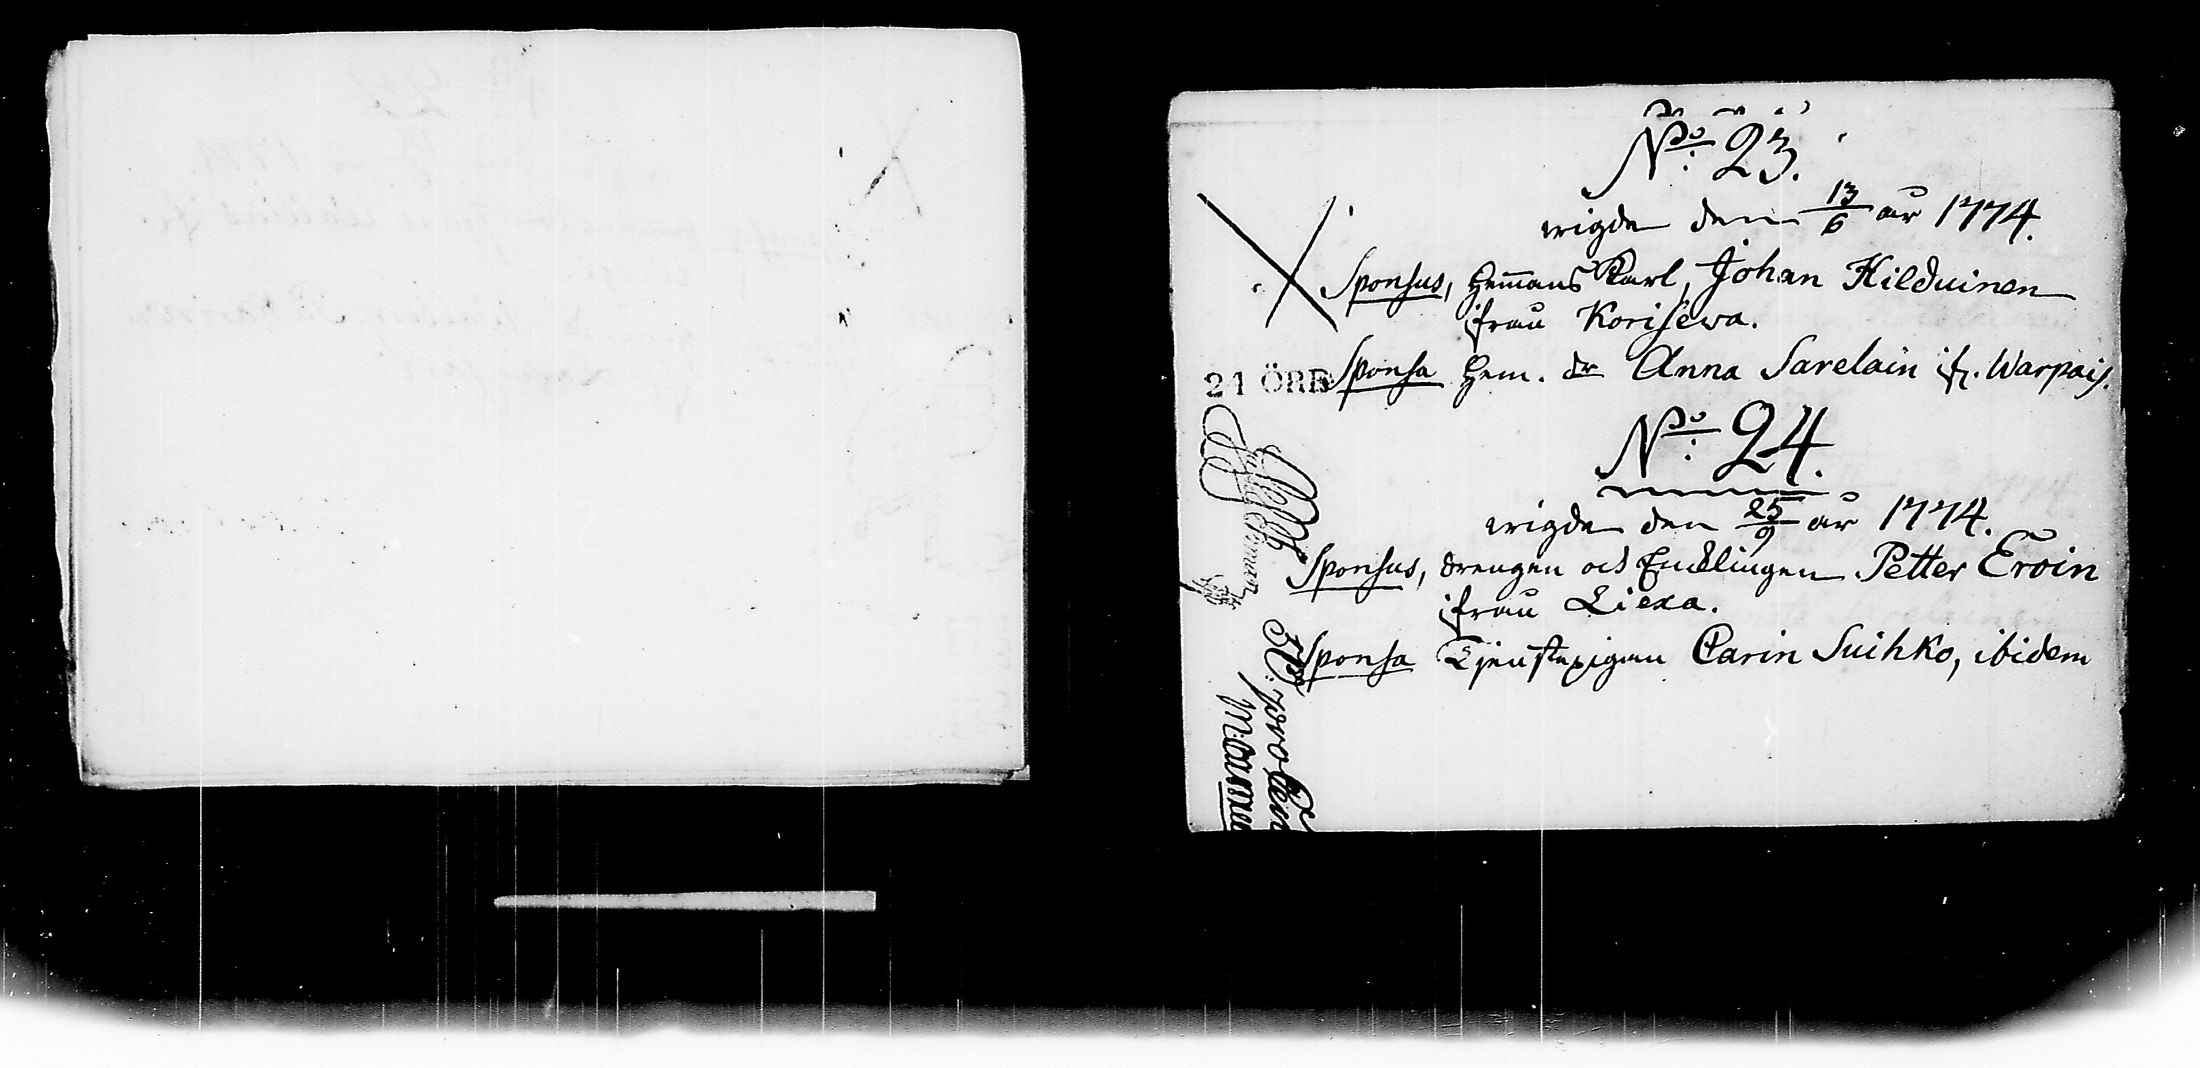 No: 23.
wigde den 13/6 år 1774.
Sponsus, Hemmans Karl, Johan Kilduinen
ifrån Korisewa.
24 ÖRE
Sponsa Hem. dr Anna Sarelain ifr. Warpais.
No: 24.
wigde den 25/9 år 1774.
Sponsus, drengen och Encklingen Petter Eroin
ifrån Liexa.
Sponsa Tjenstepigan Carin Suihko, ibidem